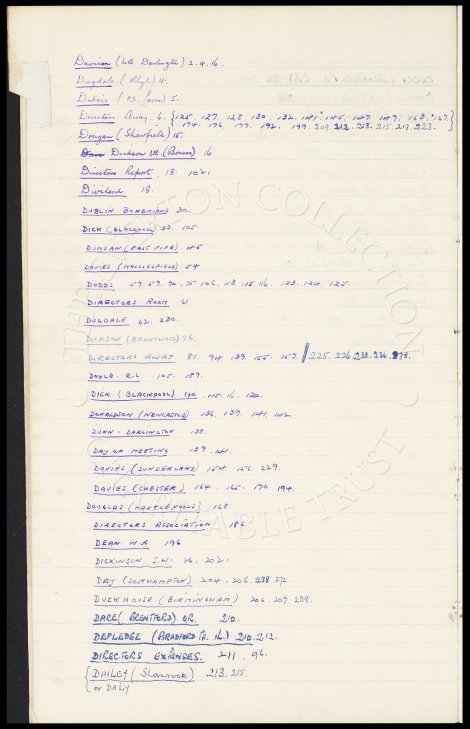 Davison (L.B. Darlington) 2.4.16.
Dugdale (Rhyl) 4.
Dubois 5.
Directors Away. 6. {125. 127. 128. 130. 132. 141. 145. 147. 149. 163. 167.}
174. 176. 179. 192. 199. 209. 212. 213. 215. 217. 223.
Dougan (Shawfield) 15.
Dickson (Barrow) 16
Directors Report. 18. 102.
Dividend 18.
DUBLIN BOHEMIANS 30.
DICK (BLACKPOOL) 33. 105.
DIMSON (EAST FIFE) 45
DAVIES (MACCLESFIELD) 54
DODDS 57. 59. 70. 75. 106. 113. 115. 116. 123. 124. 125.
DIRECTORS ROOM 61
DUGDALE 62. 230.
DICKSON (BRENTWOOD) 76.
DIRECTORS AWAY 81. 94. 139. 155. 157. / 225. 226. 236.
DOYLE. R.L 105. 189.
DICK (BLACKPOOL) 115. 116. 120.
DONALDSON (NEWCASTLE) 136. 139. 141. 142.
DUNN - DARLINGTON 138.
DAY OF MEETING 139. 141.
DAVIES (SUNDERLAND) 154. 156. 229.
DAVIES (CHESTER) 164. 165. 170. 194.
DOUGLAS (HARTLEPOOLS) 168
DIRECTORS ASSOCIATION 186.
DEAN W.R 196
DICKINSON J.W. 26. 202.
DAY (SOUTHAMPTON) 204. 206. 238. 272.
DUCKHOUSE (BIRMINGHAM) 206. 207. 208.
DARE (BRENTFORD) OR. 210.
DEPLEDGE (BRADFORD P.A.) 210. 212.
DIRECTORS EXPENSES. 211. 96.
{DAILEY (Shamrock) 213. 215.
or DALY
THE LITTLETON COLLECTION
CHARITABLE TRUST